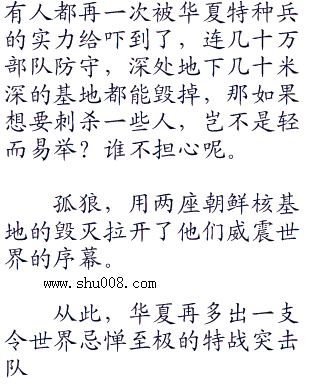 有人都再一次被华夏特种兵
的实力给吓到了，连几十万
部队防守，深处地下几十米
深的基地都能毁掉，那如果
想要刺杀一些人，岂不是轻
而易举？谁不担心呢。
孤狼，用两座朝鲜核基
地的毁灭拉开了他们威震世
界的序幕。
www.shu008.com
从此，华夏再多出一支
令世界忌惮至极的特战突击
队